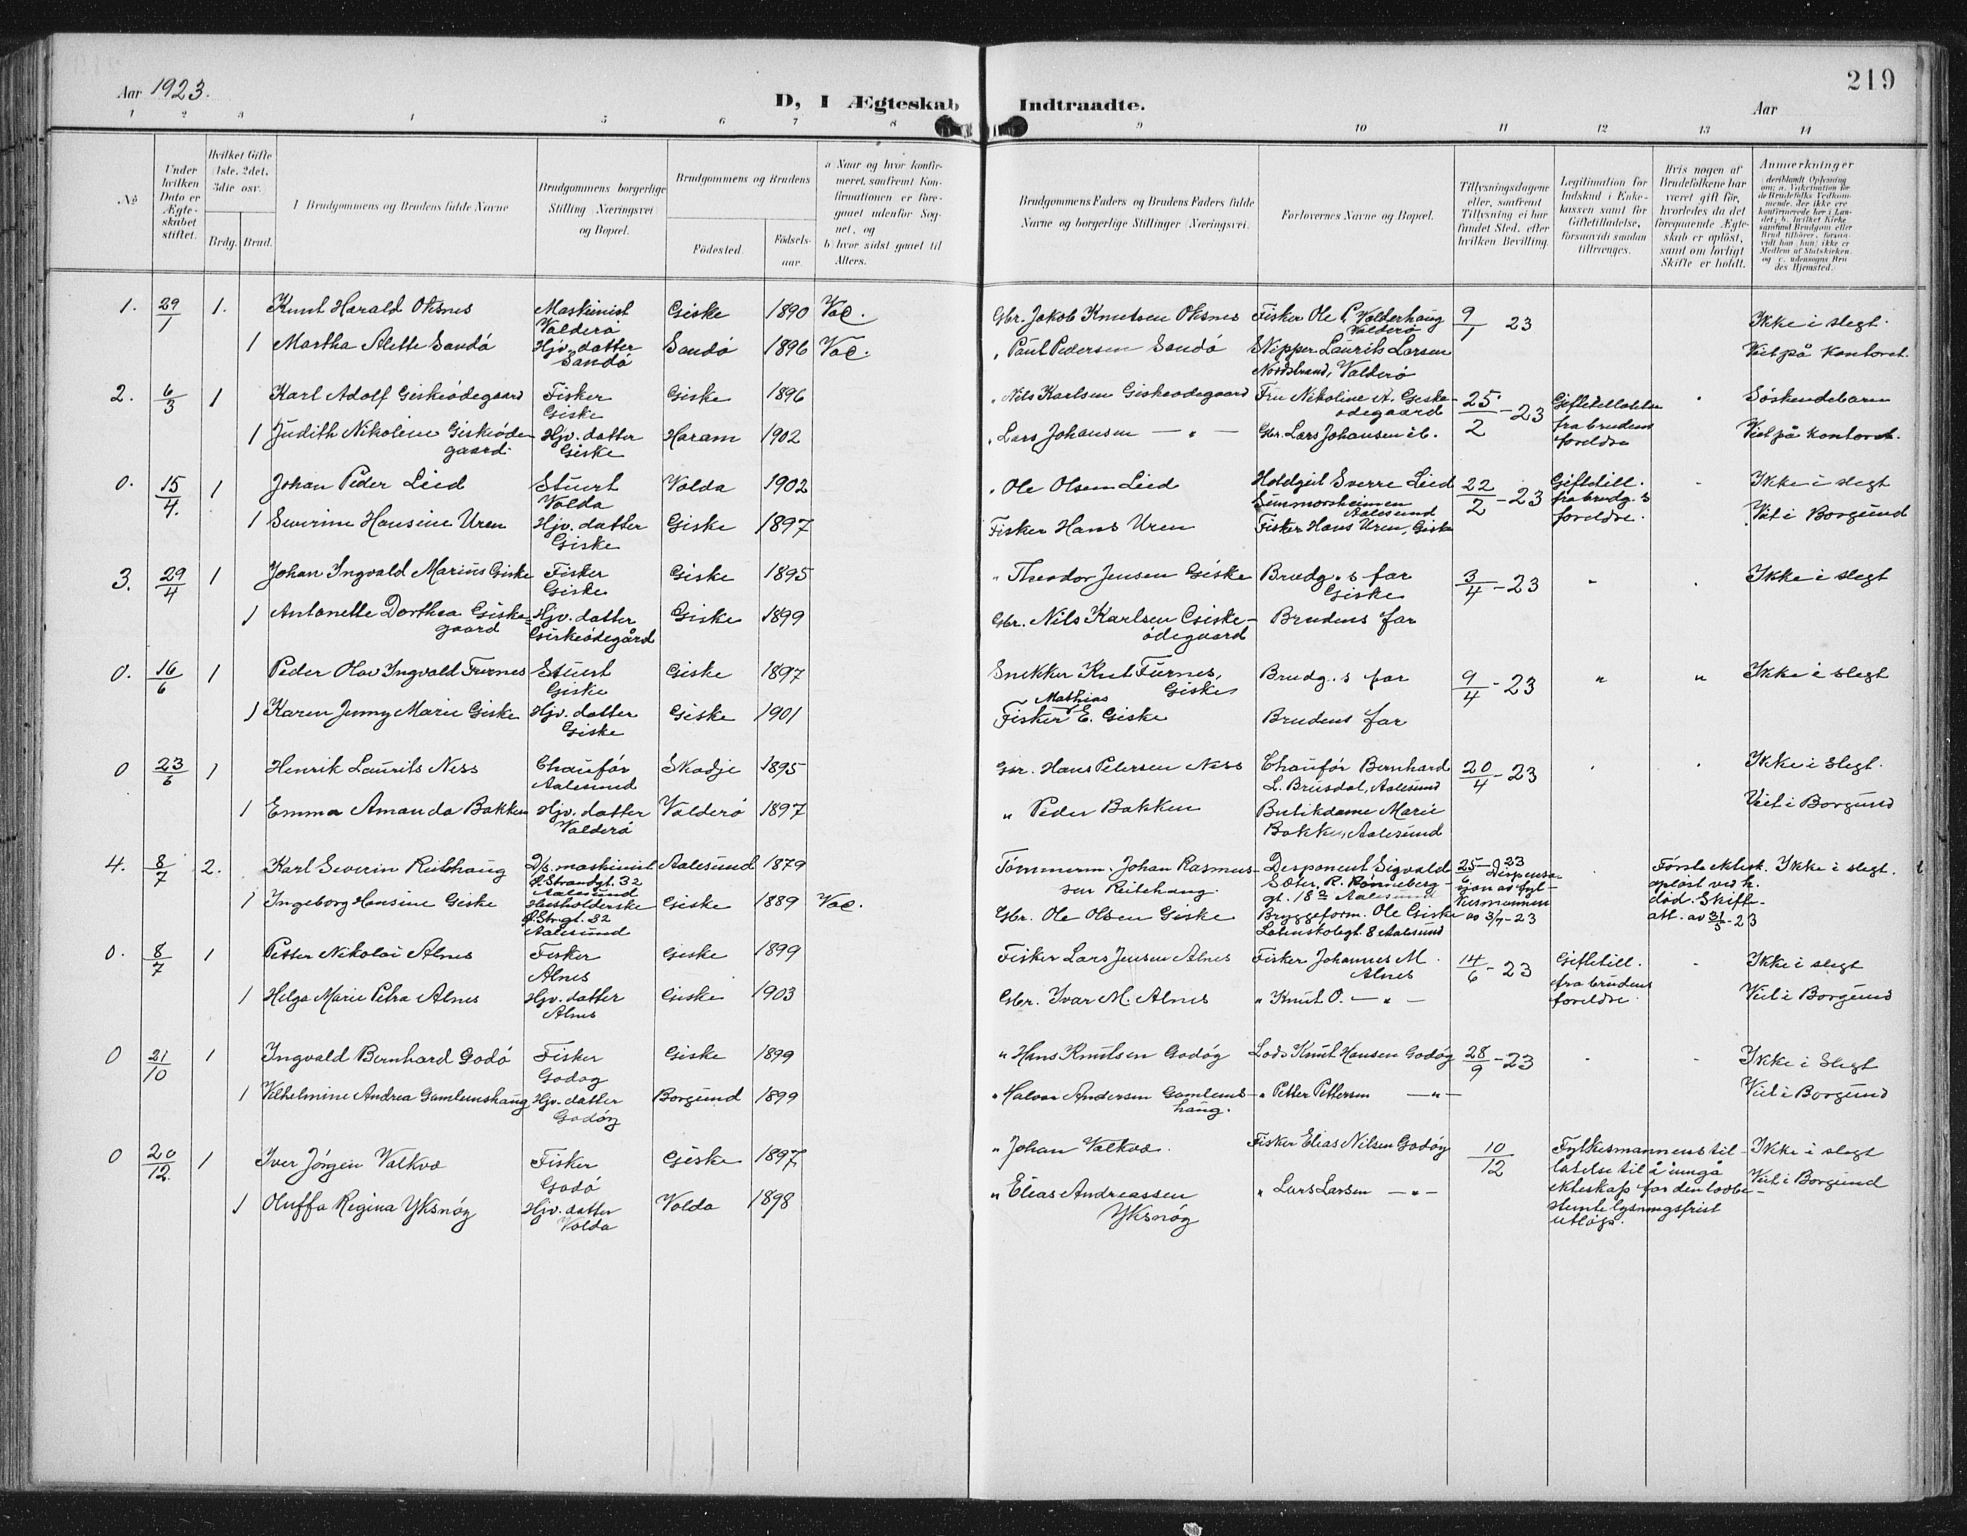 Aar 1923.
D, I Ægteskab Indtraadte.
219
Aar
1 2 3 4 5 6 7 8 9 10 11 12 13 14
No
Under hvilken Dato er Ægteskabet stiftet.
Hvilket Gifte 1ste, 2det, 3die osv.
Brdg. Brud.
I Brudgommens og Brudens fulde Navne
Brudgommens borgerlige Stilling Næringsvei og Bopæl.
Brudgommens og Brudens
Fødested.
Fødselsaar.
a Naar og hvor konfirmeret, samt om Konfirmationen er foregaaet udenfor Sognet, og
b. hvor sidst gaaet til Alters.
Brudgommens Faders og Brudens Faders fulde Navne og borgerlige Stillinger (Næringsvei.
Forlovernes Navne og Bopæl.
Tillysningsdagene eller, saafremt Tillysning ei har fundet Sted, efter hvilken Bevilling.
Legitimation for Indskud i Enkekassen samt for Giftetilladelse, forsaavidt saadan tiltrænges.
Hvis nogen af Brudefolkene har været gift før, hvorledes da det foregaaende Ægteskab er opløst, samt om lovligt Skifte er holdt.
Anmerkninger
1. 29/1 1. Knut Harald Oksnes Maskinist Valderø Giske 1890 Vac. Gbr. Jakob Knutsen Oksnes Fisker Ole P. Valderhaug Valderø 9/1 23 Ikke i slegt.
1 Martha Alette Sandø Hjv. datter Sandø Sandø 1896 Vac. " Paul Pedersen Sandø Skipper Laurits Larsen Nordstrand, Valderø Viet på kontoret.
2. 6/3 1 Karl Adolf Giskeødegaard Fisker Giske Giske 1896 " Nils Karlsen Giskeødegaard Fru Nikoline A. Giskeødegaard 25/2-23 Giftetilladelse fra brudens foreldre " Søskendebarn
1 Judith Nikoline Giskeødegaard Hjv. datter Giske Haram 1902 " Lars Johansen — " — Gbr. Lars Johansen ib. Viet på kontoret.
0. 15/4. 1 Johan Peder Lied Stuert Volda Volda 1902 " Ole Olsen Lied Hotelgut Sverre Lied Sunmørsheimen Aalesund 22/2-23 Giftetill. fra brudg.s foreldre. Ikke i slegt
1 Severine Hansine Uren Hjv. datter Giske Giske 1897 Fisker Hans Uren Fisker Hans Uren, Giske Viet i Borgund
3. 29/4 1 Johan Ingvald Marius Giske Fisker Giske Giske 1895 " Theodor Jensen Giske Brudg.s far Giske 3/4-23 " " Ikke i slegt
1 Antonette Dorthea Giskegaard Hjv. datter Giskeødegård Giske 1899 Gbr. Nils Karlsen Giskeødegaard Brudens far
0. 16/6 1 Peder Olav Ingvald Furnes Stuert Giske Giske 1897 Snekker Knut Furnes, Giske Brudg.s far 9/4-23 " " Ikke i slegt
1 Karen Jenny Marie Giske Hjv. datter Giske Giske 1901 Fisker Mathias E. Giske Brudens far
0 23/6 1 Henrik Laurits Ness Chaufør Aalesund Skodje 1895 Gbr. Hans Petersen Ness Chaufør Bernhard L. Brusdal, Aalesund 20/4-23 Ikke i slegt.
1 Emma Amanda Bakken Hjv. datter Valderø Valderø 1897 " Peder Bakken Butikdame Marie Bakken, Aalesund Viet i Borgund
4. 8/7 2. Karl Severin Reitehaug D/s. maskinist Ø. Strandgt. 32 Aalesund Aalesund 1879 Tømmerm. Johan Rasmussen Reitehaug. Disponent Sigvald Sæter, R. Rønneberggt. 18a Aalesund 25/6-23 Dispensasjon av fylkesmannen av 3/7-23 Første ektesk. opløst ved h. død. Skifteatt. av 31/5-23 Ikke i slegt.
1 Ingeborg Hansine Giske Husholderske Ø. Strgt. 32 Aalesund Giske 1889 Vac. Gbr. Ole Olsen Giske Bryggeform. Ole Giske Latinskolegt. 8 Aalesund
0. 8/7 1 Petter Nikolai Alnes Fisker Alnes Giske 1899 Fisker Lars Jensen Alnes Fisker Johannes M. Alnes 14/6-23 Giftetill. fra brudens foreldre. Ikke i slegt
1 Helga Marie Petra Alnes Hjv. datter Alnes Giske 1903 Gbr. Ivar M. Alnes " Knut O. — " — Viet i Borgund
0 21/10 1 Ingvald Bernhard Godø Fisker Godøy Giske 1899 " Hans Knutsen Godøy Lods Knut Hansen Godøy 28/9-23 Ikke i slegt
1 Vilhelmine Andrea Gamlemshaug Hjv. datter Godøy Borgund 1899 " Halvor Andersen Gamlemshaug. " Petter Pettersen — " — Viet i Borgund
0 20/12. 1 Iver Jørgen Valkvæ Fisker Godø Giske 1897 " Johan Valkvæ. Fisker Elias Nilsen Godøy 10/12 Fylkesmannens tillatelse til å inngå ekteskap før den lovbestemte lysningsfrist utløp. Ikke i slegt
1 Oluffa Regina Yksnøy Hjv. datter Volda Volda 1898 " Elias Andreassen Yksnøy " Lars Larsen — " — Viet i Borgund